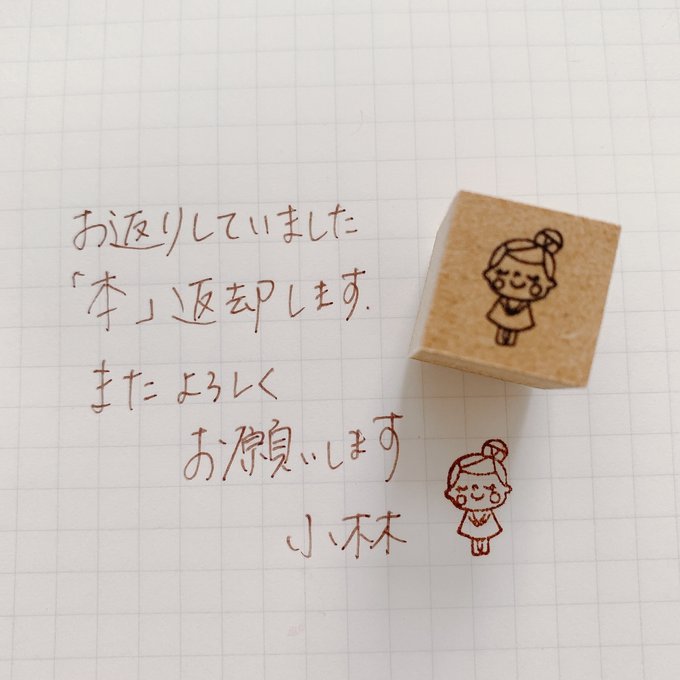 お返りしていました
「本」返却します.
またよろしく
お願いします
小林